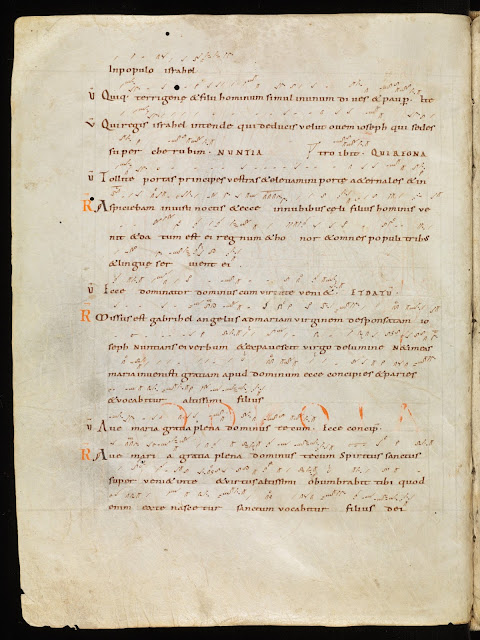 Inpopulo israhel
V Quiq; terrigenę & filii hominum simul inunum diues & paup. Ite
V Qui regis israhel intende qui deducis velut ouem ioseph qui sedes
super cherubim NUNTIA Introibit QUI REGNA
V Tollite portas principes vestras & eleuamini portę aeternales & in
R Aspiciebam inuisu noctis & ecce innubibus cęli filius hominis ve
nit & datum est ei regnum & honor & omnes populi tribus
& linguę seruient ei
V Ecce dominator dominus cum virtute veni& ET DATU
R Missus est gabrihel angelus admariam virginem desponsatam io
seph Nuntians ei verbum & expauescit virgo delumine Netimeas
maria inuenisti gratiam apud dominum ecce concipies & paries
& vocabitur altissimi filius
V Aue maria gratia plena dominus tecum Ecce concip
R Aue maria gratia plena dominus tecum Spiritus sanctus
superueni& inte & virtus altissimi obumbrabit tibi quod
enim exte nascetur sanctum vocabitur filius dei